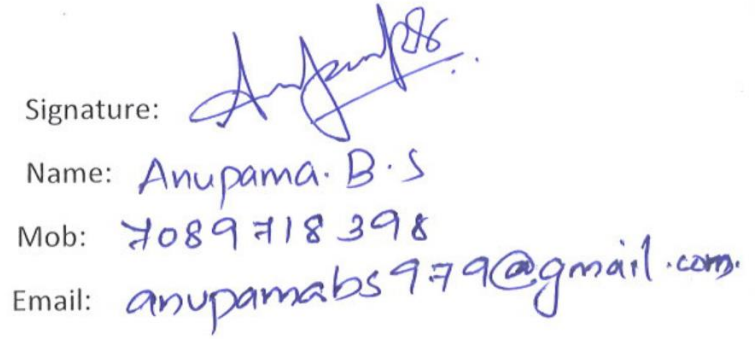 Signature:
Name: Anupama. B. S
Mob: 7089718398
Email: anupamabs979@gmail.com.